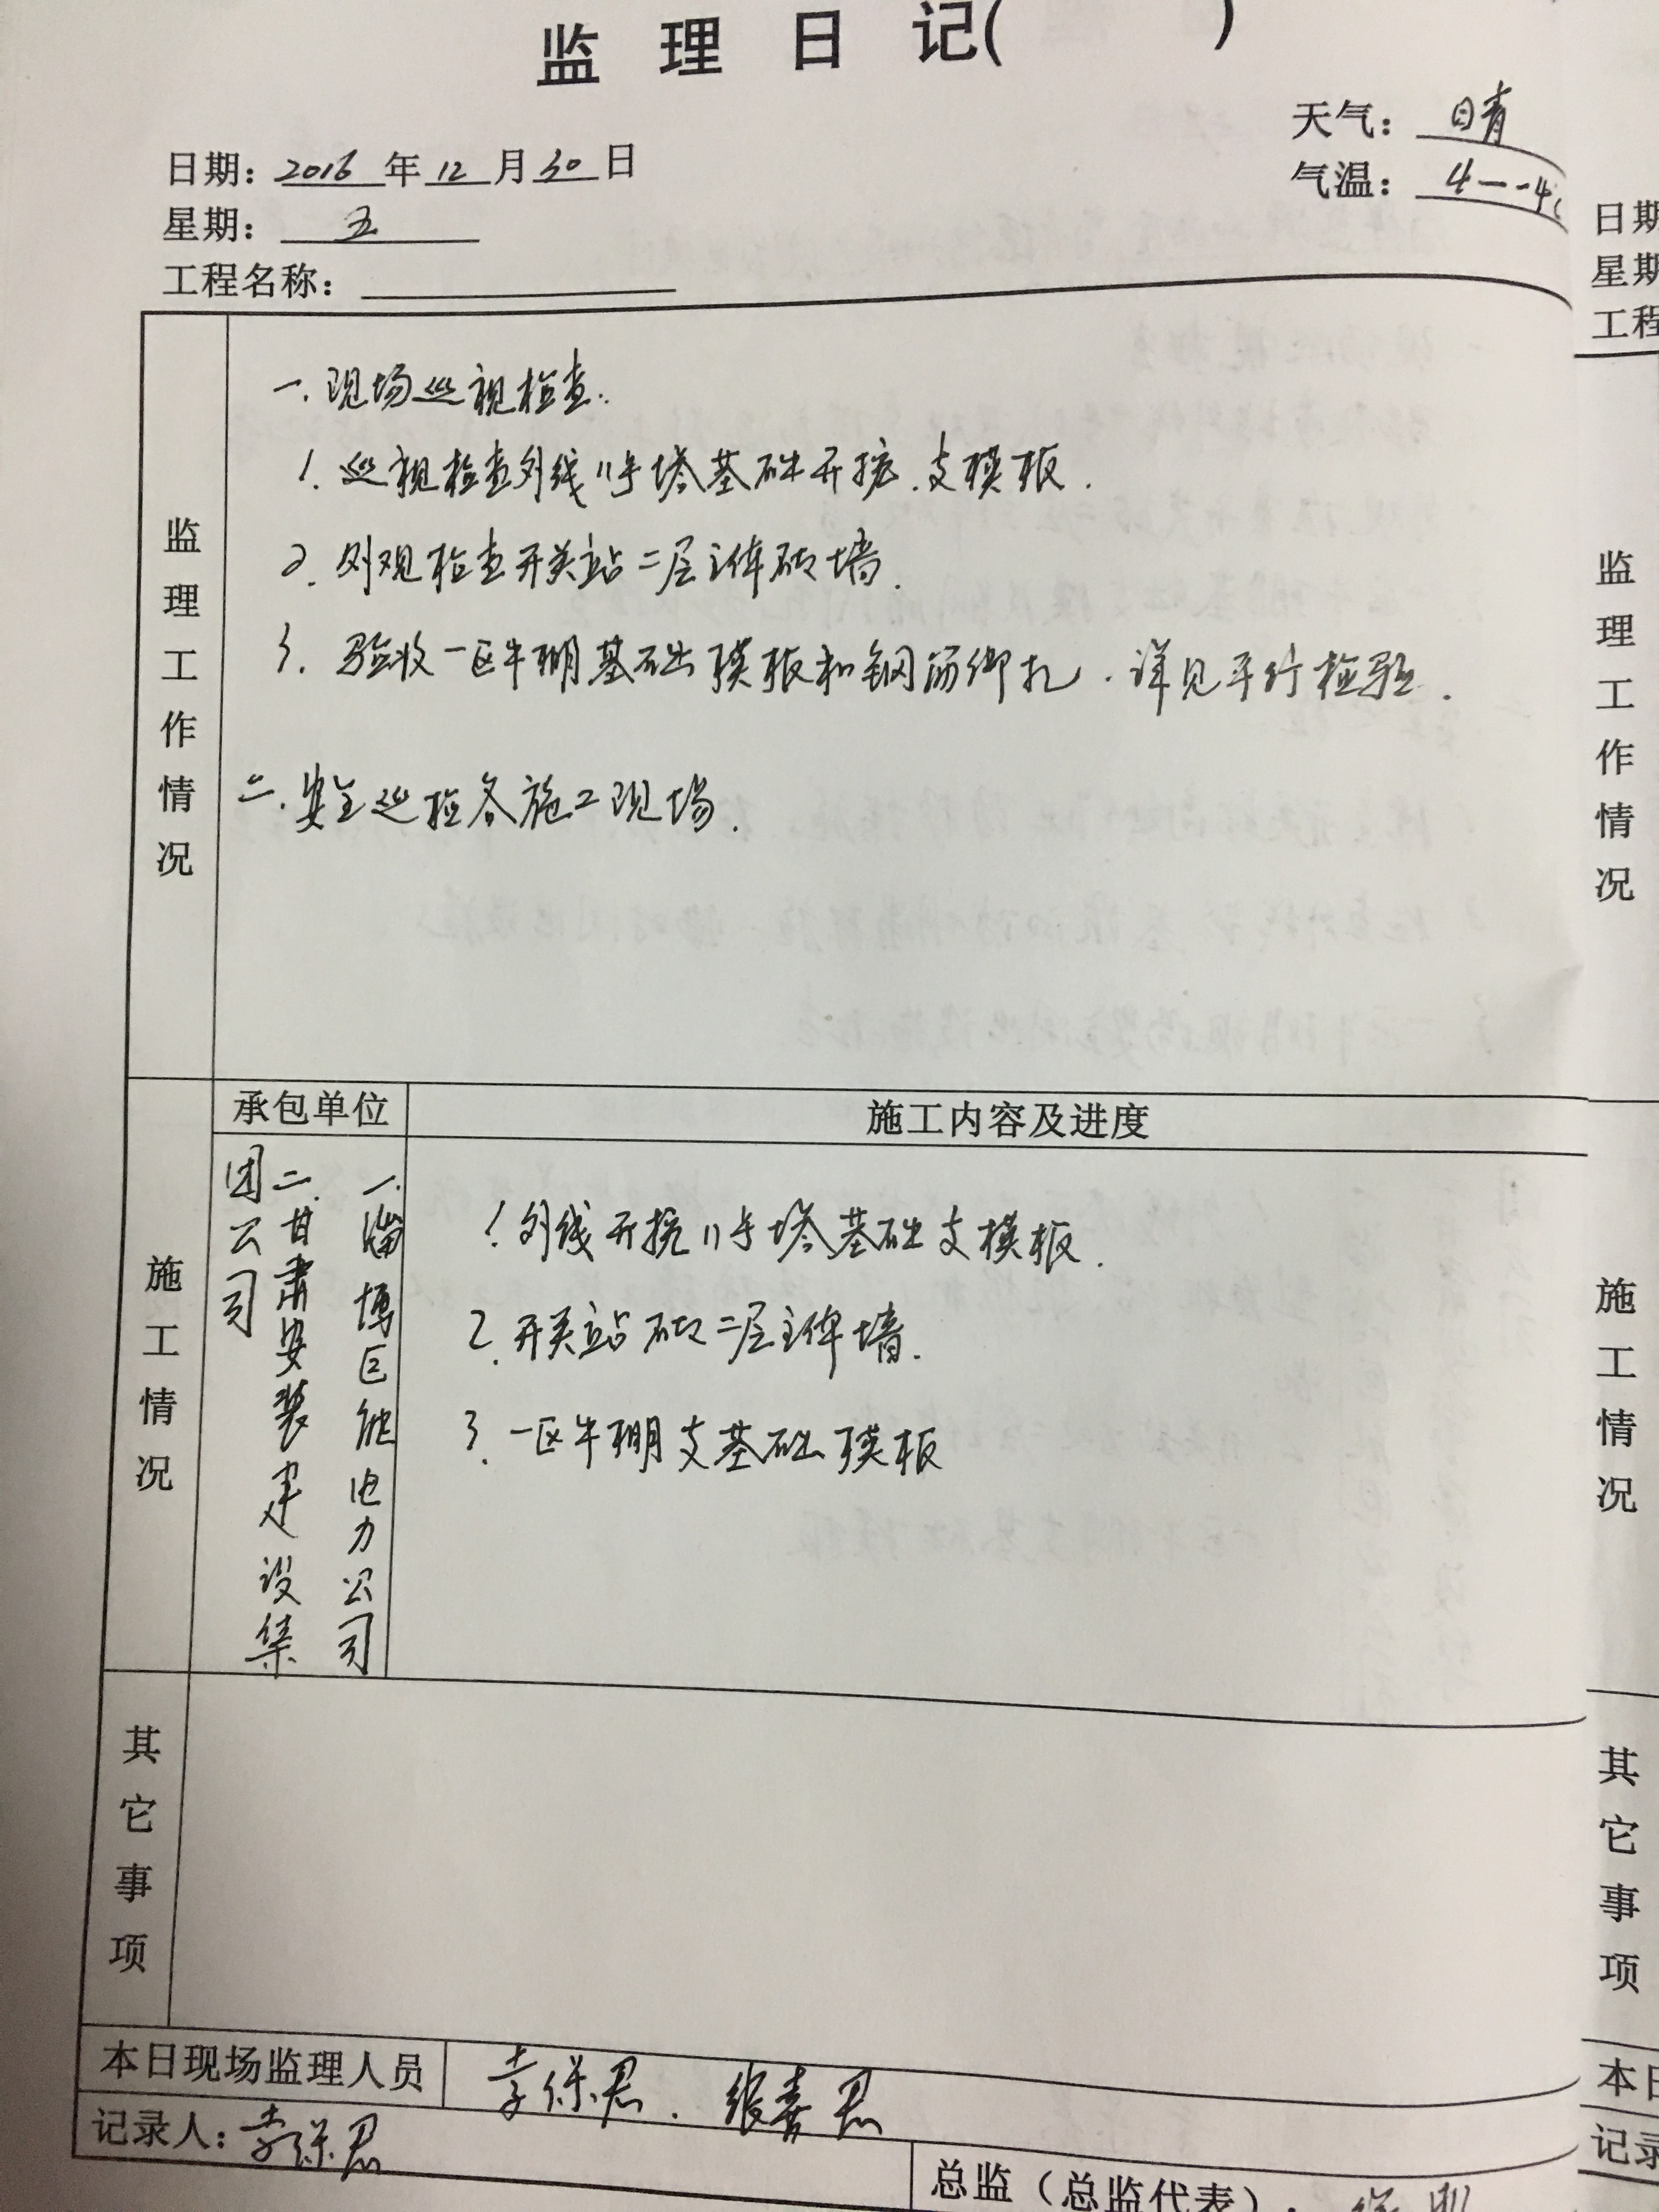 监 理 日 记( )
天气: 晴
日期: 2016 年 12 月 30 日
气温: 4--4
星期: 五
工程名称:
监理工作情况
一.现场巡视检查.
1. 巡视检查外线11号塔基础开挖.支模板.
2. 外观检查开关站二层主体砖墙.
3. 验收一区牛棚基础模板和钢筋绑扎.详见平行检验.
二.安全巡检各施工现场.
施工情况
承包单位
施工内容及进度
一.淄博巨能电力公司
二.甘肃安装建设集
团公司
1.外线开挖11号塔基础支模板.
2.开关站砌二层主体墙.
3.一区牛棚支基础模板
其它事项
本日现场监理人员
李保恩.张喜恩
记录人:李保恩
总监(总监代表):
日期
星期
工程
监理工作情况
施工情况
其它事项
本日
记录